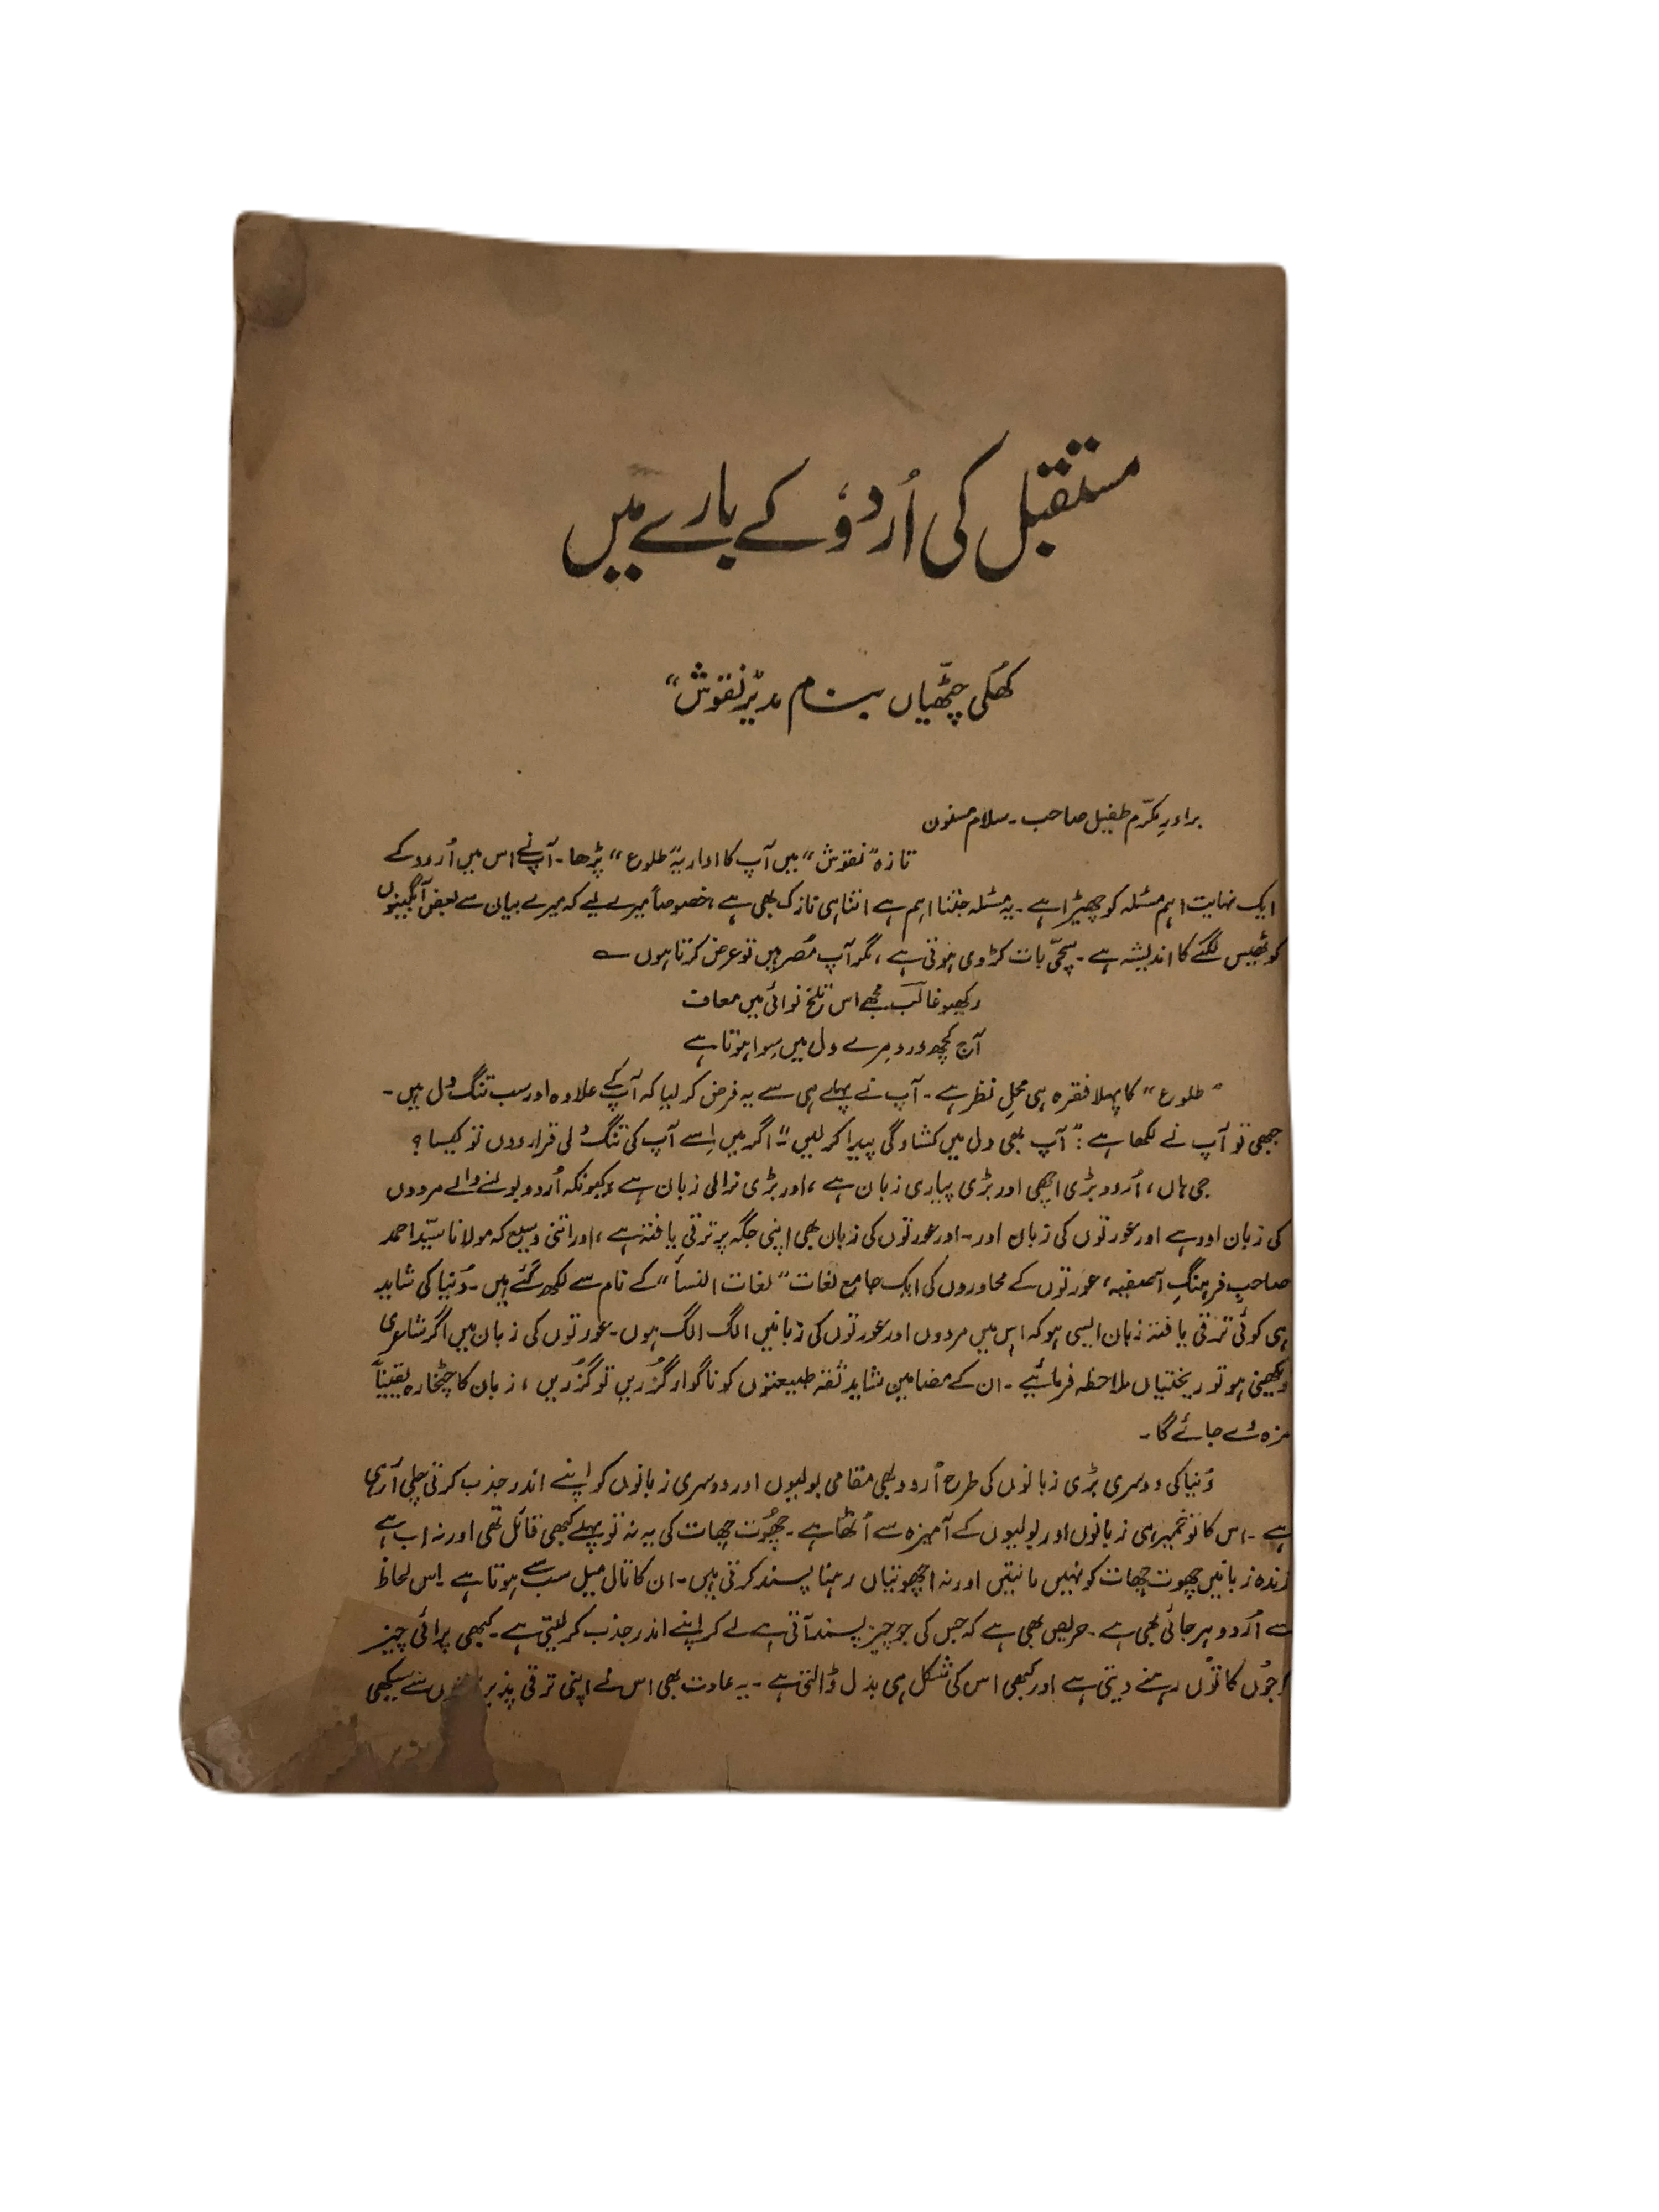 مستقبل کی اُردوٗ کے بارے میں
کھُلی چٹّھیاں بنام مدیرِ "نقوش"
برادرِ مکرّم طفیل صاحب۔ سلام مسنون
تازہ "نقوش" میں آپ کا اداریہ "طلوع" پڑھا۔ آپ نے اس میں اُردو کے
ایک نہایت اہم مسئلہ کو چھیڑا ہے۔ یہ مسئلہ جتنا اہم ہے اتنا ہی نازک بھی ہے، خصوصاً میرے لیے کہ میرے بیان سے بعض آبگینوں
کو ٹھیس لگنے کا اندیشہ ہے۔ سچّی بات کڑوی ہوتی ہے، مگر آپ مُصر ہیں تو عرض کرتا ہوں ؎
رکھیو غالبؔ مجھے اس تلخ نوائی میں معاف
آج کچھ درد مِرے دل میں سِوا ہوتا ہے
"طلوع" کا پہلا فقرہ ہی محلِ نظر ہے۔ آپ نے پہلے ہی سے یہ فرض کر لیا کہ آپ کے علاوہ اور سب تنگ دل ہیں۔
جبھی تو آپ نے لکھا ہے: "آپ بھی دل میں کشادگی پیدا کر لیں"۔ اگر میں اِسے آپ کی تنگ دلی قرار دوں تو کیسا؟
جی ہاں، اُردو بڑی اچھی اور بڑی پیاری زبان ہے، اور بڑی نرالی زبان ہے، کیونکہ اُردو بولنے والے مردوں
کی زبان اور ہے اور عورتوں کی زبان اور۔ اور عورتوں کی زبان بھی اپنی جگہ پر ترقی یافتہ ہے، اور اتنی وسیع کہ مولانا سیّد احمد
صاحبِ فرہنگِ آصفیہ، عورتوں کے محاوروں کی ایک جامع لغات "لغات النسأ" کے نام سے لکھ گئے ہیں۔ دُنیا کی شاید
ہی کوئی ترقی یافتہ زبان ایسی ہو کہ اس میں مردوں اور عورتوں کی زبانیں الگ الگ ہوں۔ عورتوں کی زبان میں اگر شاعری
دیکھنی ہو تو ریختیاں ملاحظہ فرمائیے۔ ان کے مضامین شاید ثقہ طبیعتوں کو ناگوار گزُریں تو گزُریں، زبان کا چٹخارہ یقیناً
مزہ دے جائے گا۔
دُنیا کی دوسری بڑی زبانوں کی طرح اُردو بھی مقامی بولیوں اور دوسری زبانوں کو اپنے اندر جذب کرتی چلی آ رہی
ہے۔ اس کا تو خمیر ہی زبانوں اور بولیوں کے آمیزہ سے اُٹھا ہے۔ چھُوت چھات کی یہ نہ تو پہلے کبھی قائل تھی اور نہ اب ہے
زندہ زبانیں چھوت چھات کو نہیں مانتیں اور نہ اچھوتیاں رہنا پسند کرتی ہیں۔ ان کا تال میل سب سے ہوتا ہے۔ اِس لحاظ
سے اُردو ہرجائی بھی ہے۔ حریص بھی ہے کہ جس کی جو چیز پسند آتی ہے لے کر اپنے اندر جذب کر لیتی ہے۔ کبھی پرائی چیز
جُوں کا تُوں رہنے دیتی ہے اور کبھی اس کی شکل ہی بدل ڈالتی ہے۔ یہ عادت بھی اس نے اپنی ترقی پذیر سے سیکھی